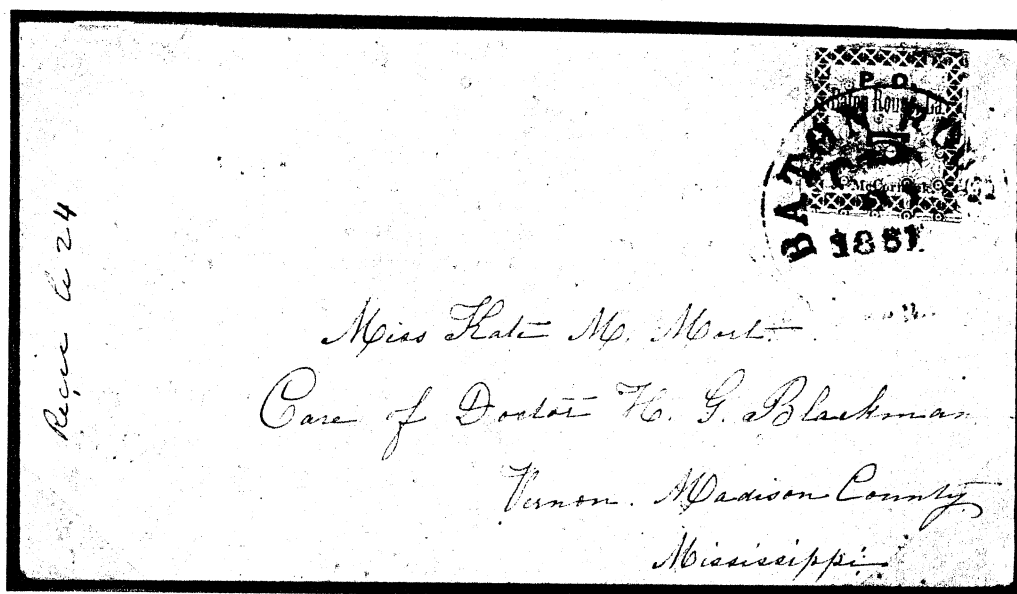 P. O.
Baton Rouge, La.
5
McCormick
BATON ROU
1861.
Miss Kate M. Mort.
Care of Doctor H. G. Blackman
Vernon. Madison County
Mississippi
24